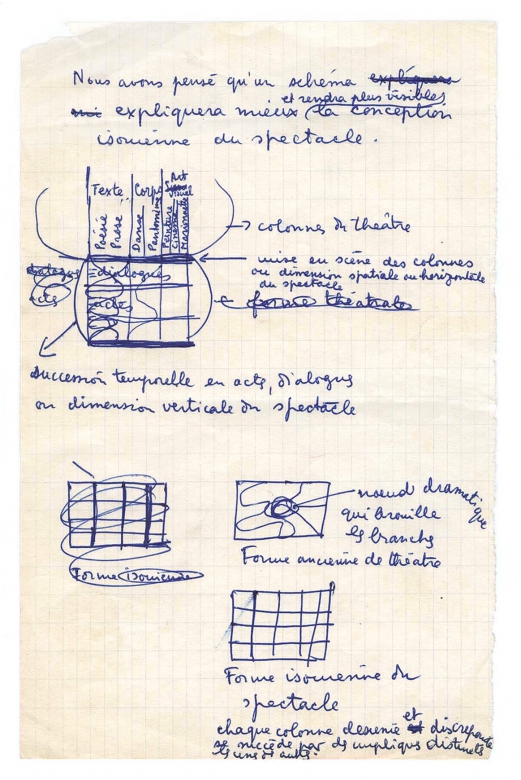 Nous avons pensé qu'un schéma expliquera
et rendra plus visibles
expliquera mieux la conception
isouienne du spectacle.
Texte Corps Art visuel
Poésie Prose Danse Pantomime Peinture Cinéma Marionnette
→ colonnes du théâtre
← mise en scène des colonnes
dialogues = dialogues
ou dimension spatiale ou horizontale
du spectacle
acts actes
← forme théâtrale
succession temporelle en acts, dialogues
ou dimension verticale du spectacle
noeud dramatique
qui brouille
les branchs
Forme ancienne de théâtre
Forme isouienne
Forme isouienne du
spectacle
et
chaque colonne et discrepante
se succède par des distincts
les uns d'autres.